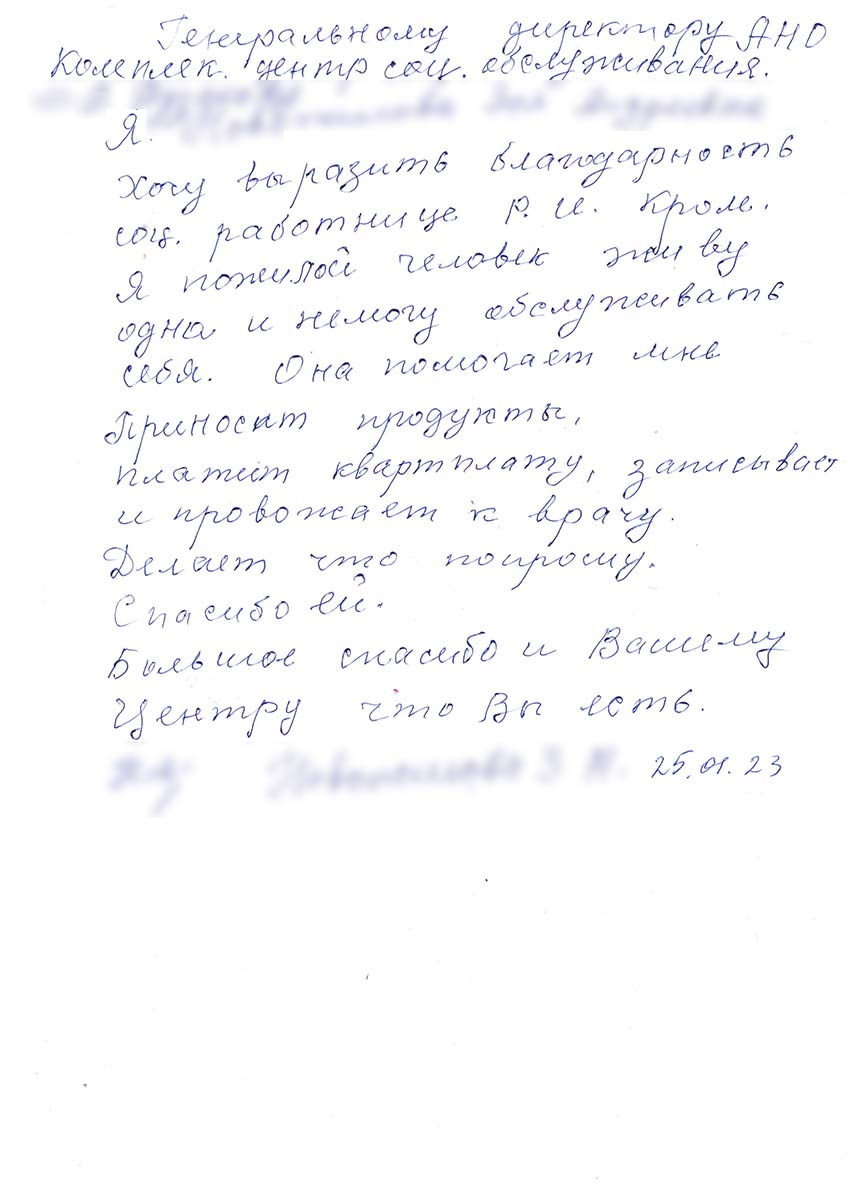 Генеральному директору АНО
Комплек. центр соц. обслуживания.
Я.
Хочу выразить благодарность
соц. работнице Р. И. Кром.
Я пожилой человек живу
одна и немогу обслуживать
себя. Она помогает мне
Приносит продукты,
платит квартплату, записывает
и провожает к врачу.
Делает что попрошу.
Спасибо ей.
Большое спасибо и Вашему
Центру что Вы есть.
25.01.23